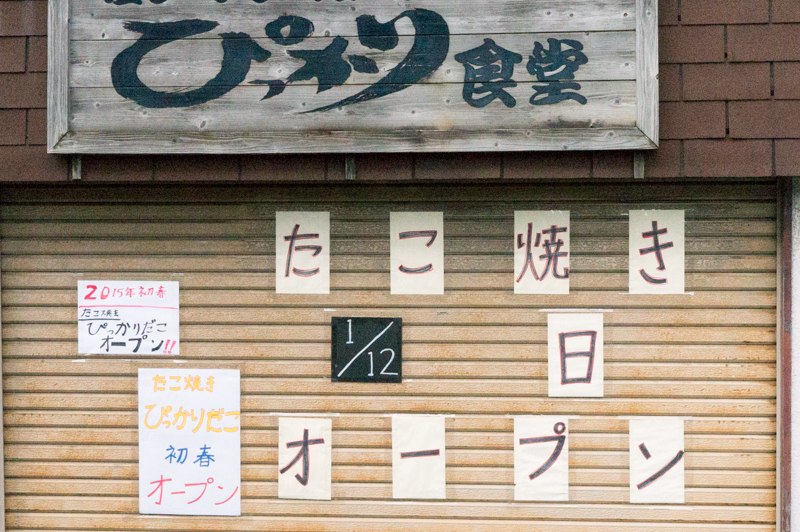 ぴっかり食堂
たこ焼き
1/12
日
オープン
2015年初春
たこ焼き
ぴっかりだこ
オープン!!
たこ焼き
ぴっかりだこ
初春
オープン